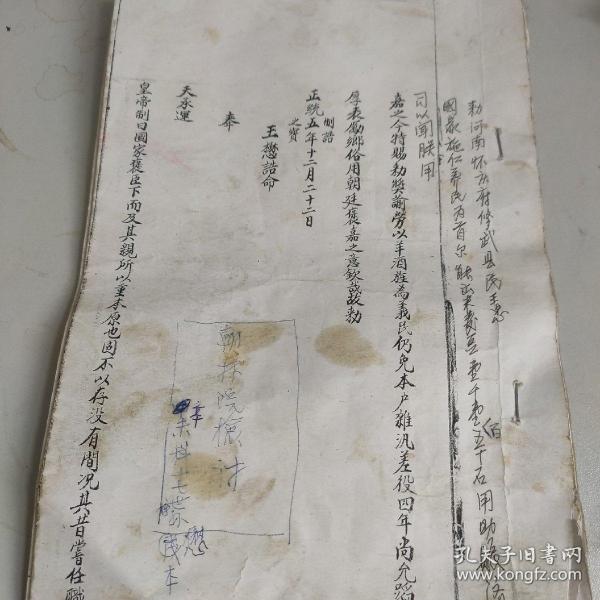 勅河南怀庆府修武县民王懋
国家施仁养民为首尔能出
壹千壹佰五十石用助
司以闻朕用
嘉之今特賜勅獎諭勞以羊酒旌為義民仍免本户雜汎差役四年尚允蹈
厚表勵鄉俗用朝廷褒嘉之意欽哉故勅
制誥
正統五年十二月二十二日
之寶
王懋誥命
奉
天承運
皇帝制曰國家褒臣下而及其親所以重本原也固不以存没有間況其昔嘗任職
翰林院檢討
懋
孔夫子旧书网